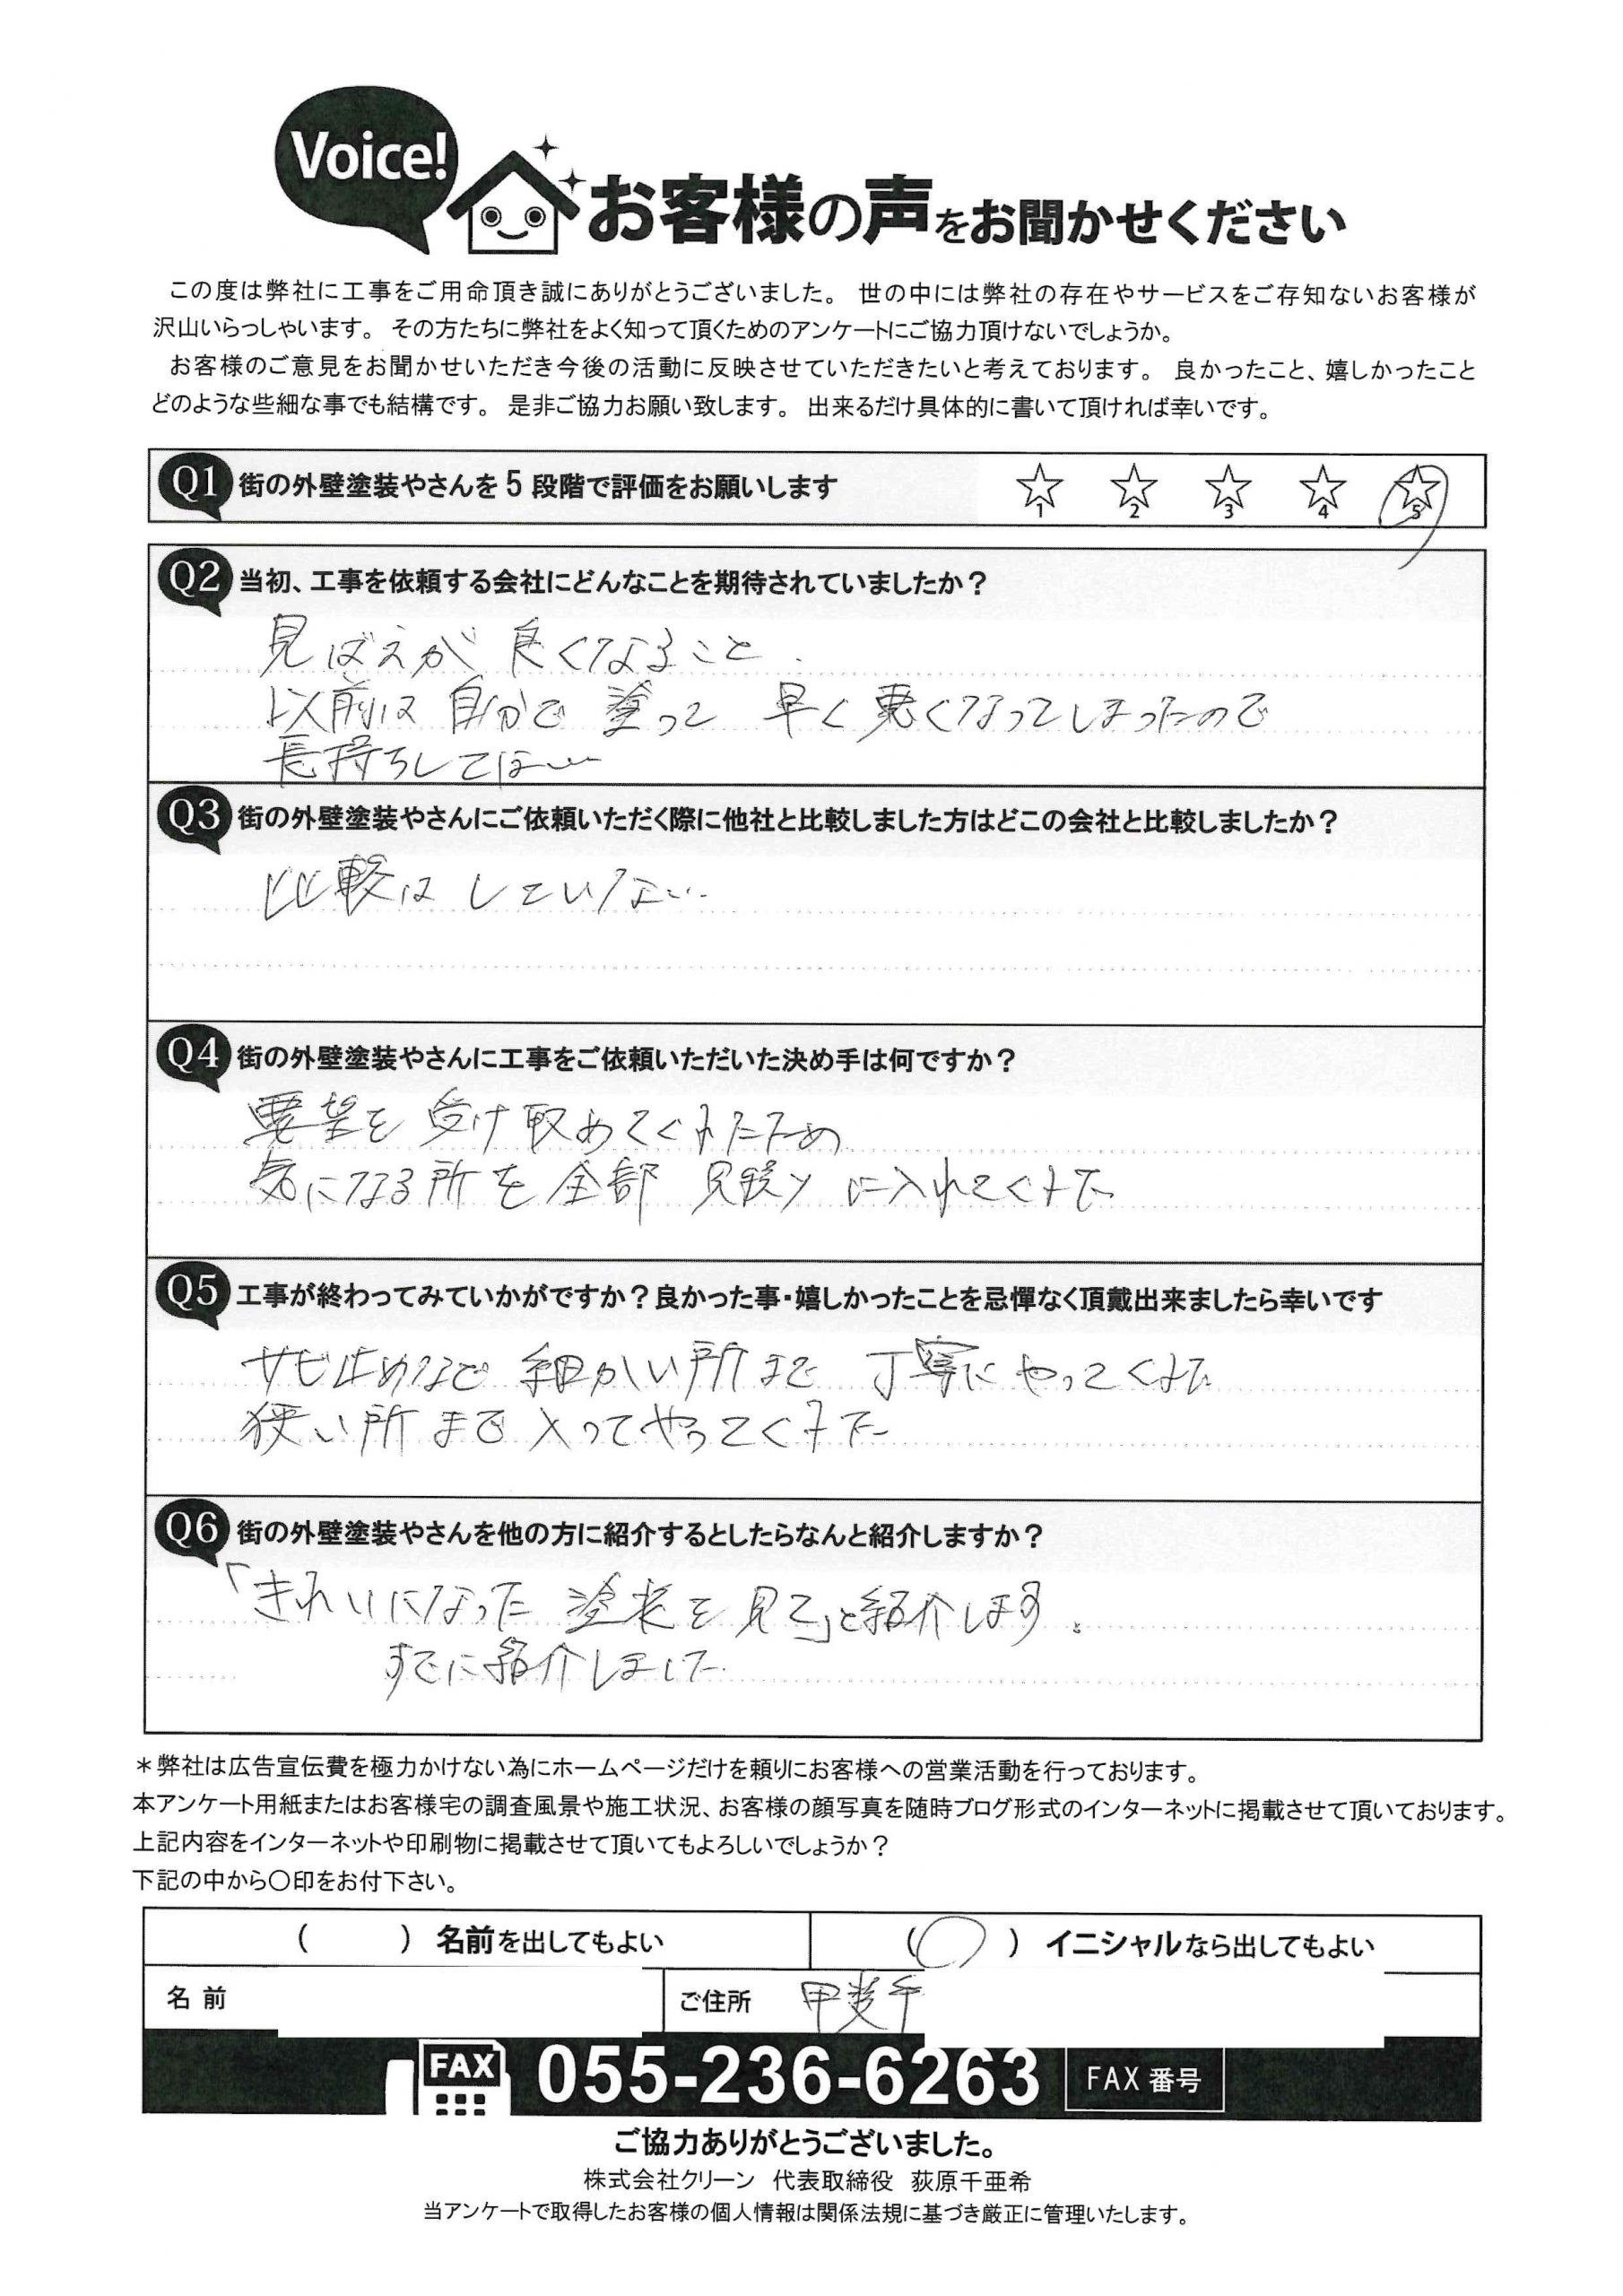 Voice!
お客様の声をお聞かせください
この度は弊社に工事をご用命頂き誠にありがとうございました。 世の中には弊社の存在やサービスをご存知ないお客様が
沢山いらっしゃいます。 その方たちに弊社をよく知って頂くためのアンケートにご協力頂けないでしょうか。
お客様のご意見をお聞かせいただき今後の活動に反映させていただきたいと考えております。 良かったこと、嬉しかったこと
どのような些細な事でも結構です。 是非ご協力お願い致します。 出来るだけ具体的に書いて頂ければ幸いです。
Q1 街の外壁塗装やさんを 5 段階で評価をお願いします ☆1 ☆2 ☆3 ☆4 ☆5
Q2 当初、工事を依頼する会社にどんなことを期待されていましたか？
見ばえが 良くなること.
以前は 自分で 塗って 早く 悪くなってしまったので
長持ちしてほしい
Q3 街の外壁塗装やさんにご依頼いただく際に他社と比較しました方はどこの会社と比較しましたか？
比較は していない.
Q4 街の外壁塗装やさんに工事をご依頼いただいた決め手は何ですか？
要望を 受け取めてくれたため
気になる所を 全部 見積り に入れてくれた
Q5 工事が終わってみていかがですか？良かった事・嬉しかったことを忌憚なく頂戴出来ましたら幸いです
サビ止めなど 細かい所まで 丁寧に やってくれた
狭い所 まで 入ってやってくれた
Q6 街の外壁塗装やさんを他の方に紹介するとしたらなんと紹介しますか？
「きれいになった 塗装を 見て」と紹介します。
すでに紹介しました
＊弊社は広告宣伝費を極力かけない為にホームページだけを頼りにお客様への営業活動を行っております。
本アンケート用紙またはお客様宅の調査風景や施工状況、お客様の顔写真を随時ブログ形式のインターネットに掲載させて頂いております。
上記内容をインターネットや印刷物に掲載させて頂いてもよろしいでしょうか？
下記の中から〇印をお付下さい。
（　　　）名前を出してもよい （〇）イニシャルなら出してもよい
名 前 ご住所 甲斐市
FAX 055-236-6263 FAX 番号
ご協力ありがとうございました。
株式会社クリーン 代表取締役 荻原千亜希
当アンケートで取得したお客様の個人情報は関係法規に基づき厳正に管理いたします。